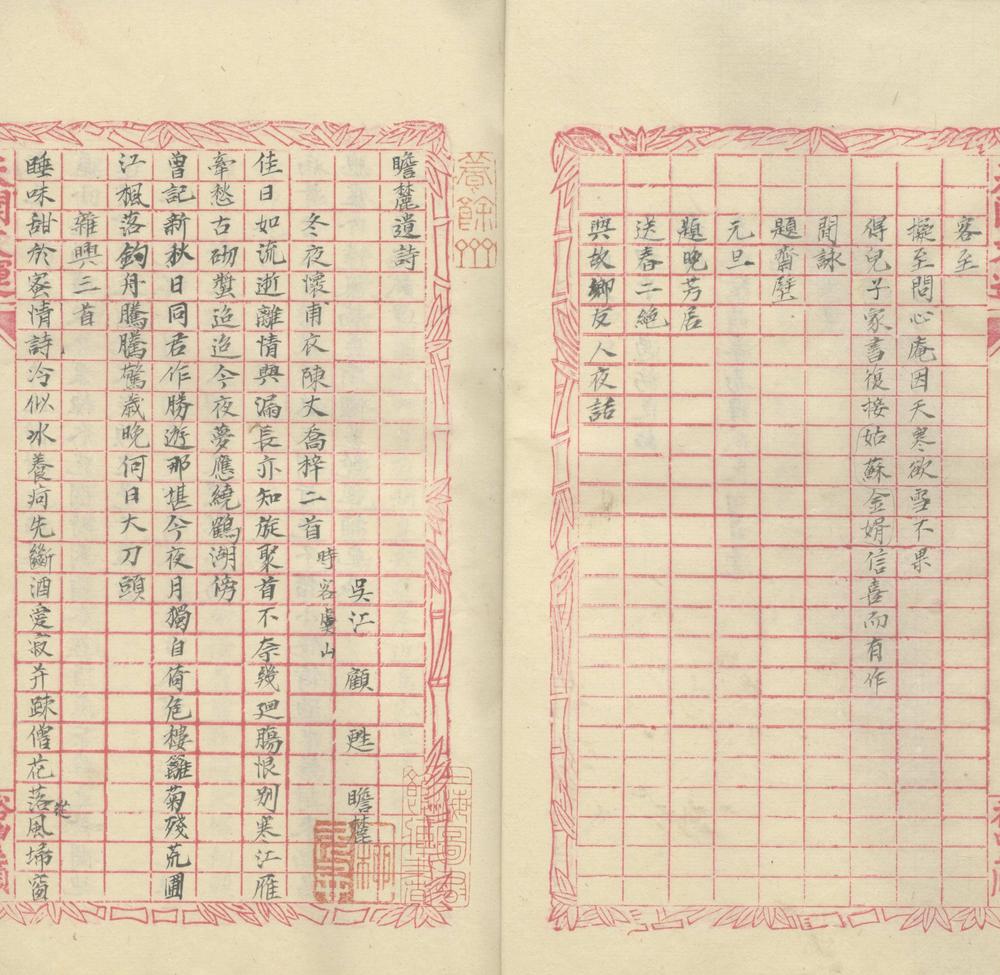 客至
擬至問心庵因天寒欲雪不果
得兒子家書復接姑蘇金婿信喜而有作
閒詠
題齋壁
元旦
題晚芳居
送春二絕
與故鄉友人夜話
瞻麓遺詩
吳江 顧 甦 瞻麓
冬夜懷甫衣陳丈喬梓二首 時客虞山
佳日如流逝離情與漏長亦知旋聚首不奈幾迴腸恨別寒江雁
牽愁古砌螿迢迢今夜夢應繞鶴湖傍
曾記新秋日同君作勝遊那堪今夜月獨自倚危樓籬菊殘荒圃
江楓落釣舟騰騰驚歲晚何日大刀頭
雜興三首
睡味甜於蜜情詩冷似冰養疴先斷酒愛寂并疎僧花落從風埽窗